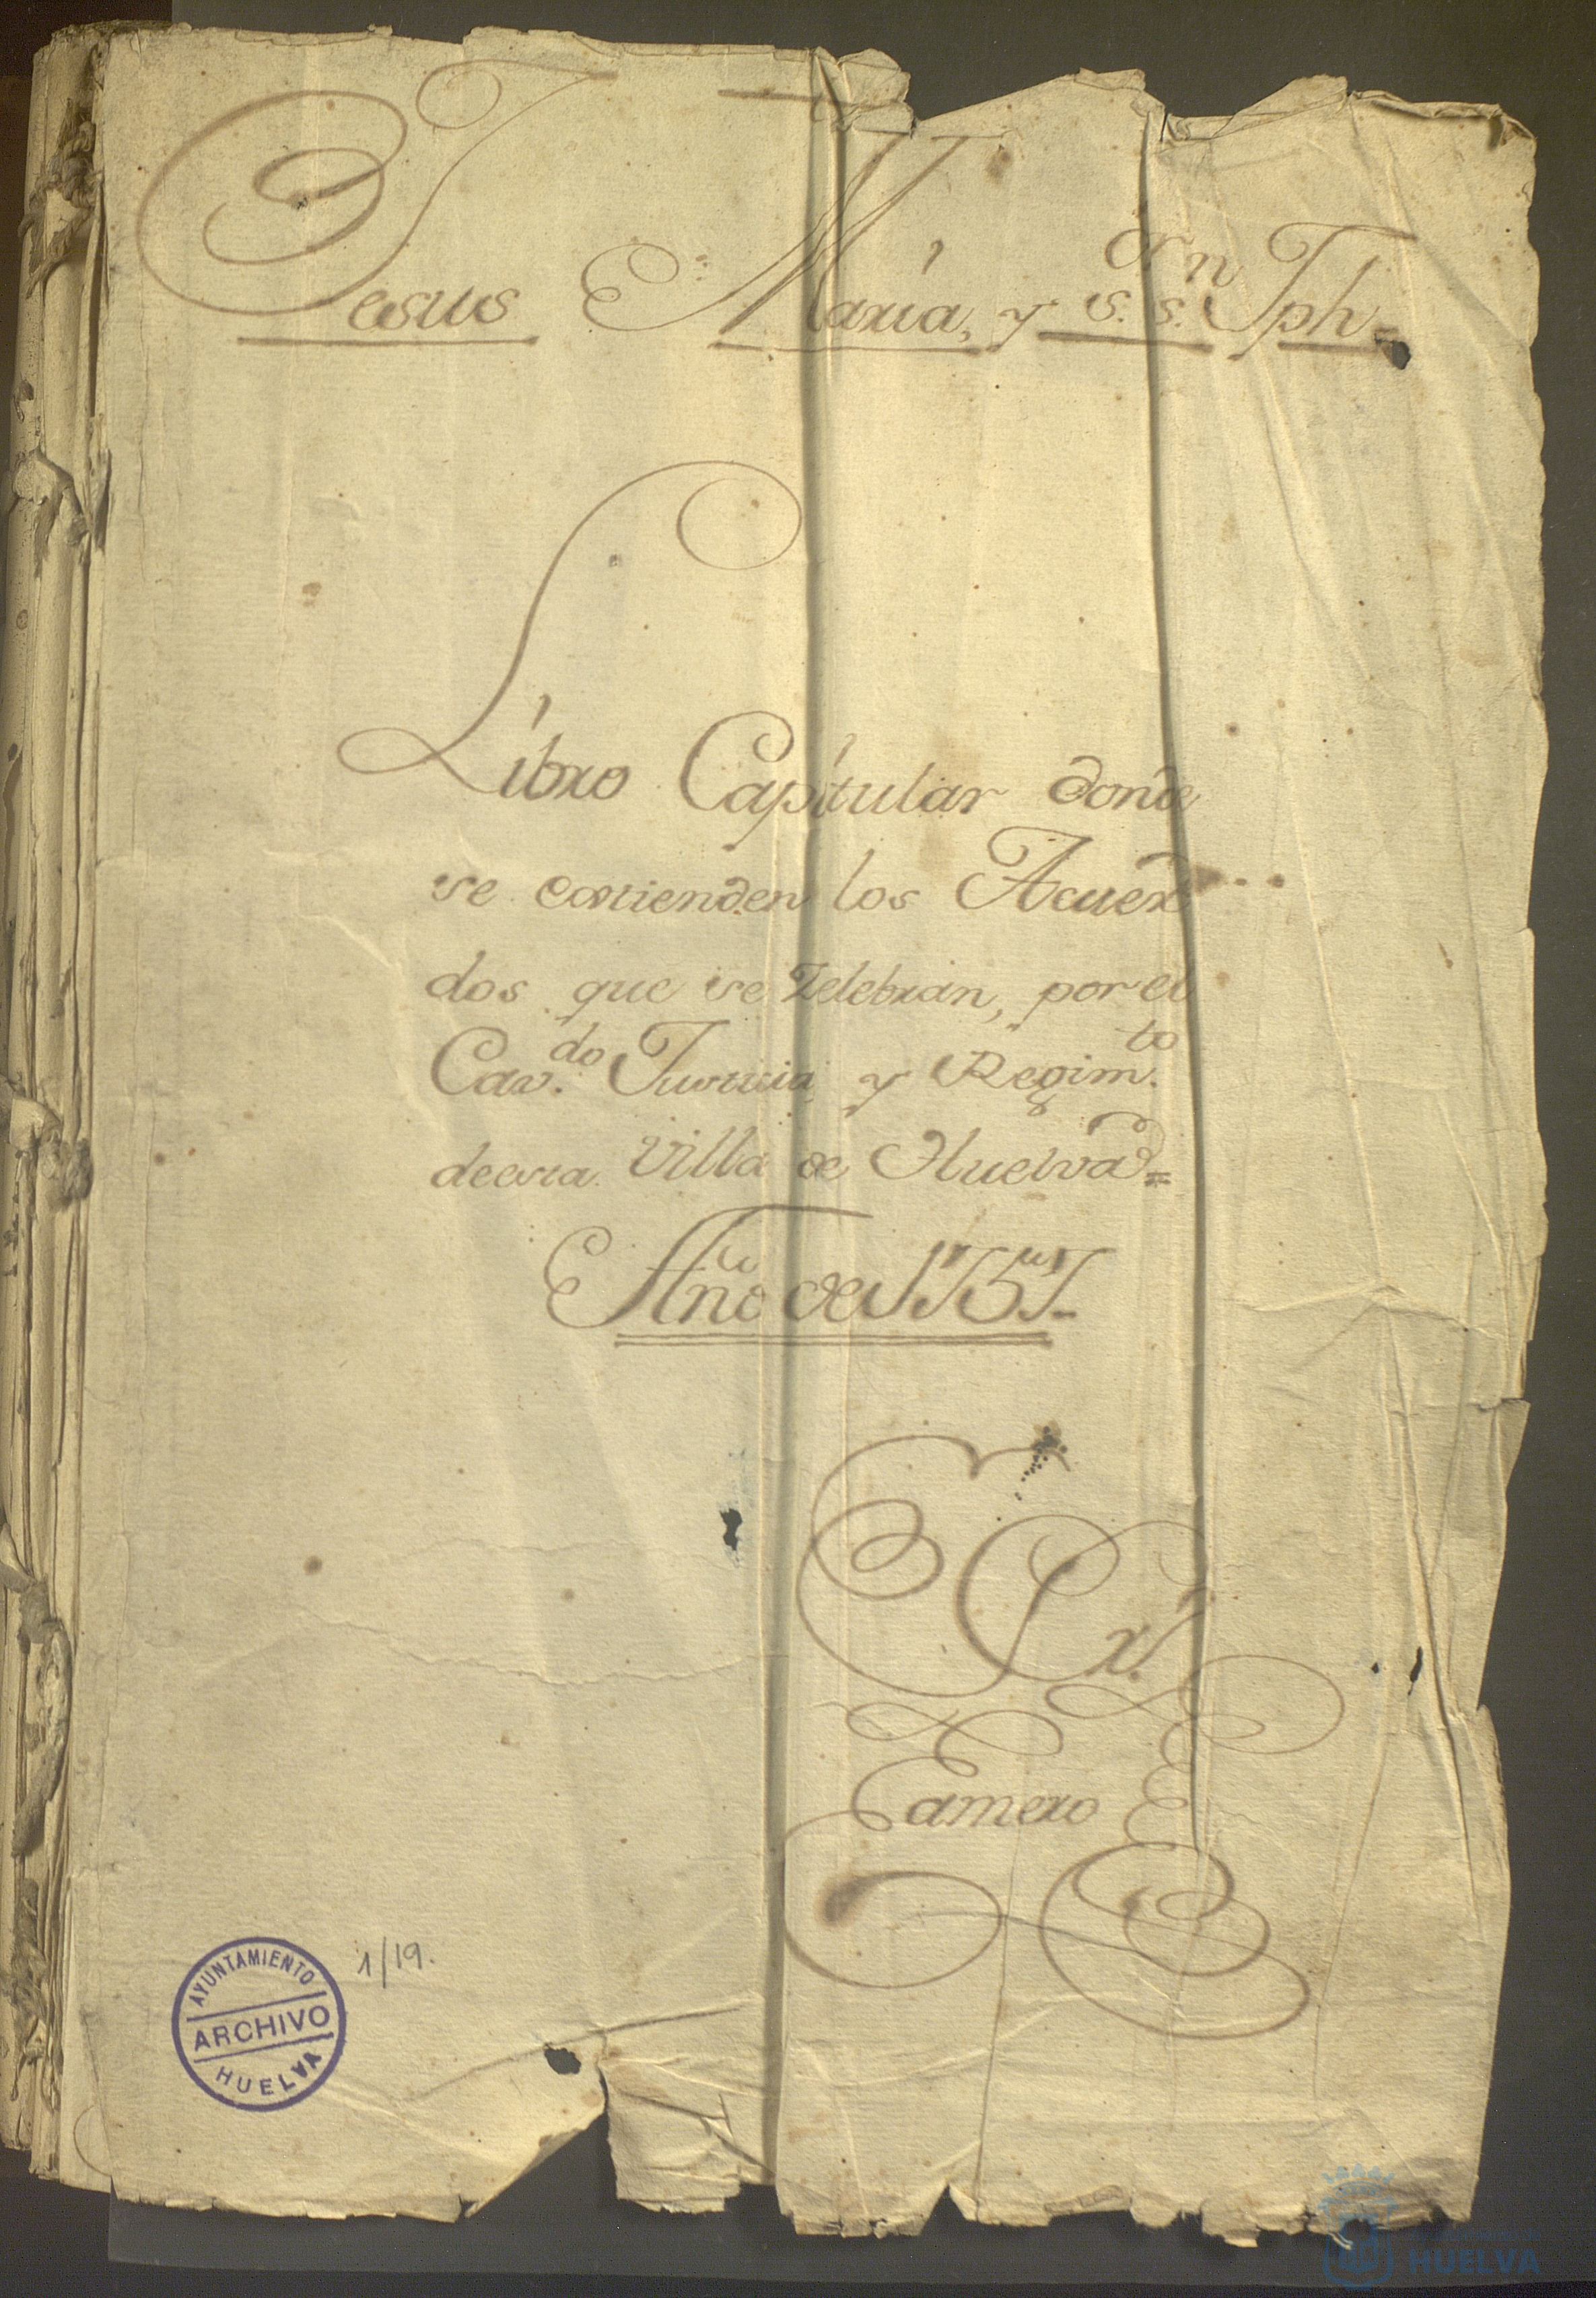 Jesus Maria, y S.S.n Jph=
Libro Capitular donde
se estienden los Acuer
dos que se Zelebran, por el
Cav.do Justicia y Regim.to
de esta Villa de Huelva=
Año de
Ss.no
Gamero
1/19.
AYUNTAMIENTO
ARCHIVO
HUELVA
HUELVA